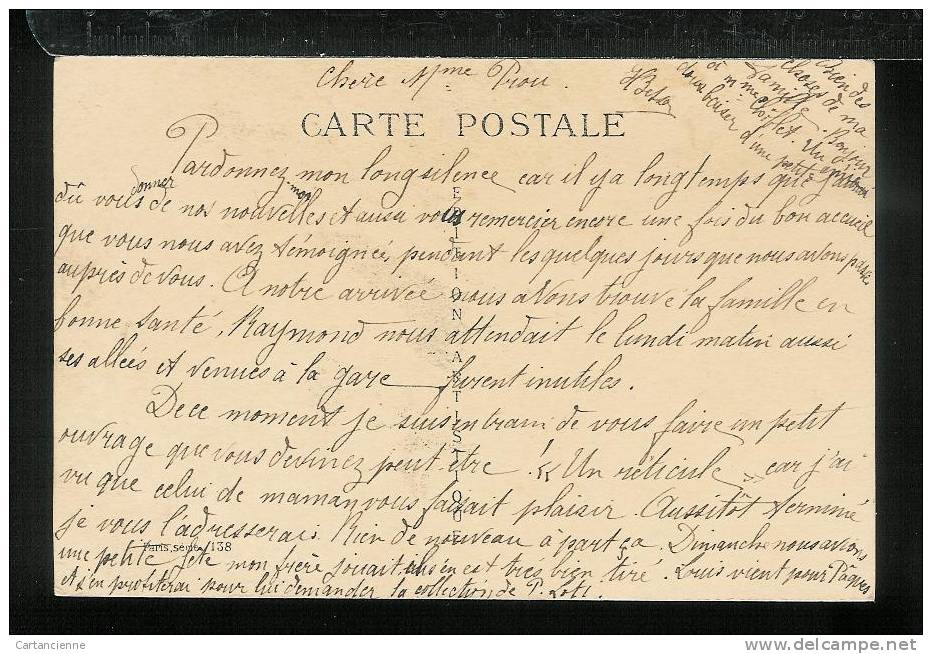 Chère Mme Prou.
CARTE POSTALE
Pardonnez mon long silence car il y a longtemps que j'aurais
dû vous donner de nos nouvelles et aussi vous remercier encore une fois du bon accueil
que vous nous avez témoignée, pendant les quelques jours que nous avons passés
auprès de vous. A notre arrivée nous avons trouvé la famille en
bonne santé, Raymond nous attendait le lundi matin aussi
ses allées et venues à la gare furent inutiles.
De ce moment je suis en train de vous faire un petit
ouvrage que vous devinez peut être ! « Un réticule » car j'ai
vu que celui de maman vous faisait plaisir. Aussitôt terminé
je vous l'adresserai. Rien de nouveau à part ça. Dimanche nous avions
une petite fête mon frère jouait ils en est très bien tiré. Louis vient pour Pâques
et j'en profiterai pour lui demander la collection de P. Loti.
Bien des
choses de ma
famille. Bonjour
à Mme
doux baiser d'une petite
EDITION ARTISTIQUE
Paris, série 138
Cartancienne
www.delcampe.net